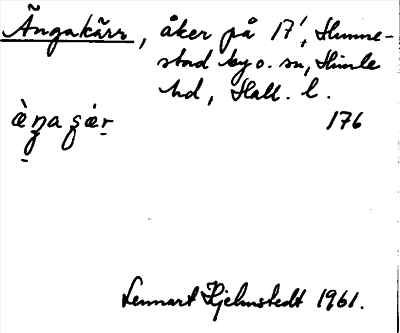 Ängakärr, åker på 17', Hunne-
stad by o. sn, Himle
hd, Hall. l.
176
Lennart Hjelmstedt 1961.